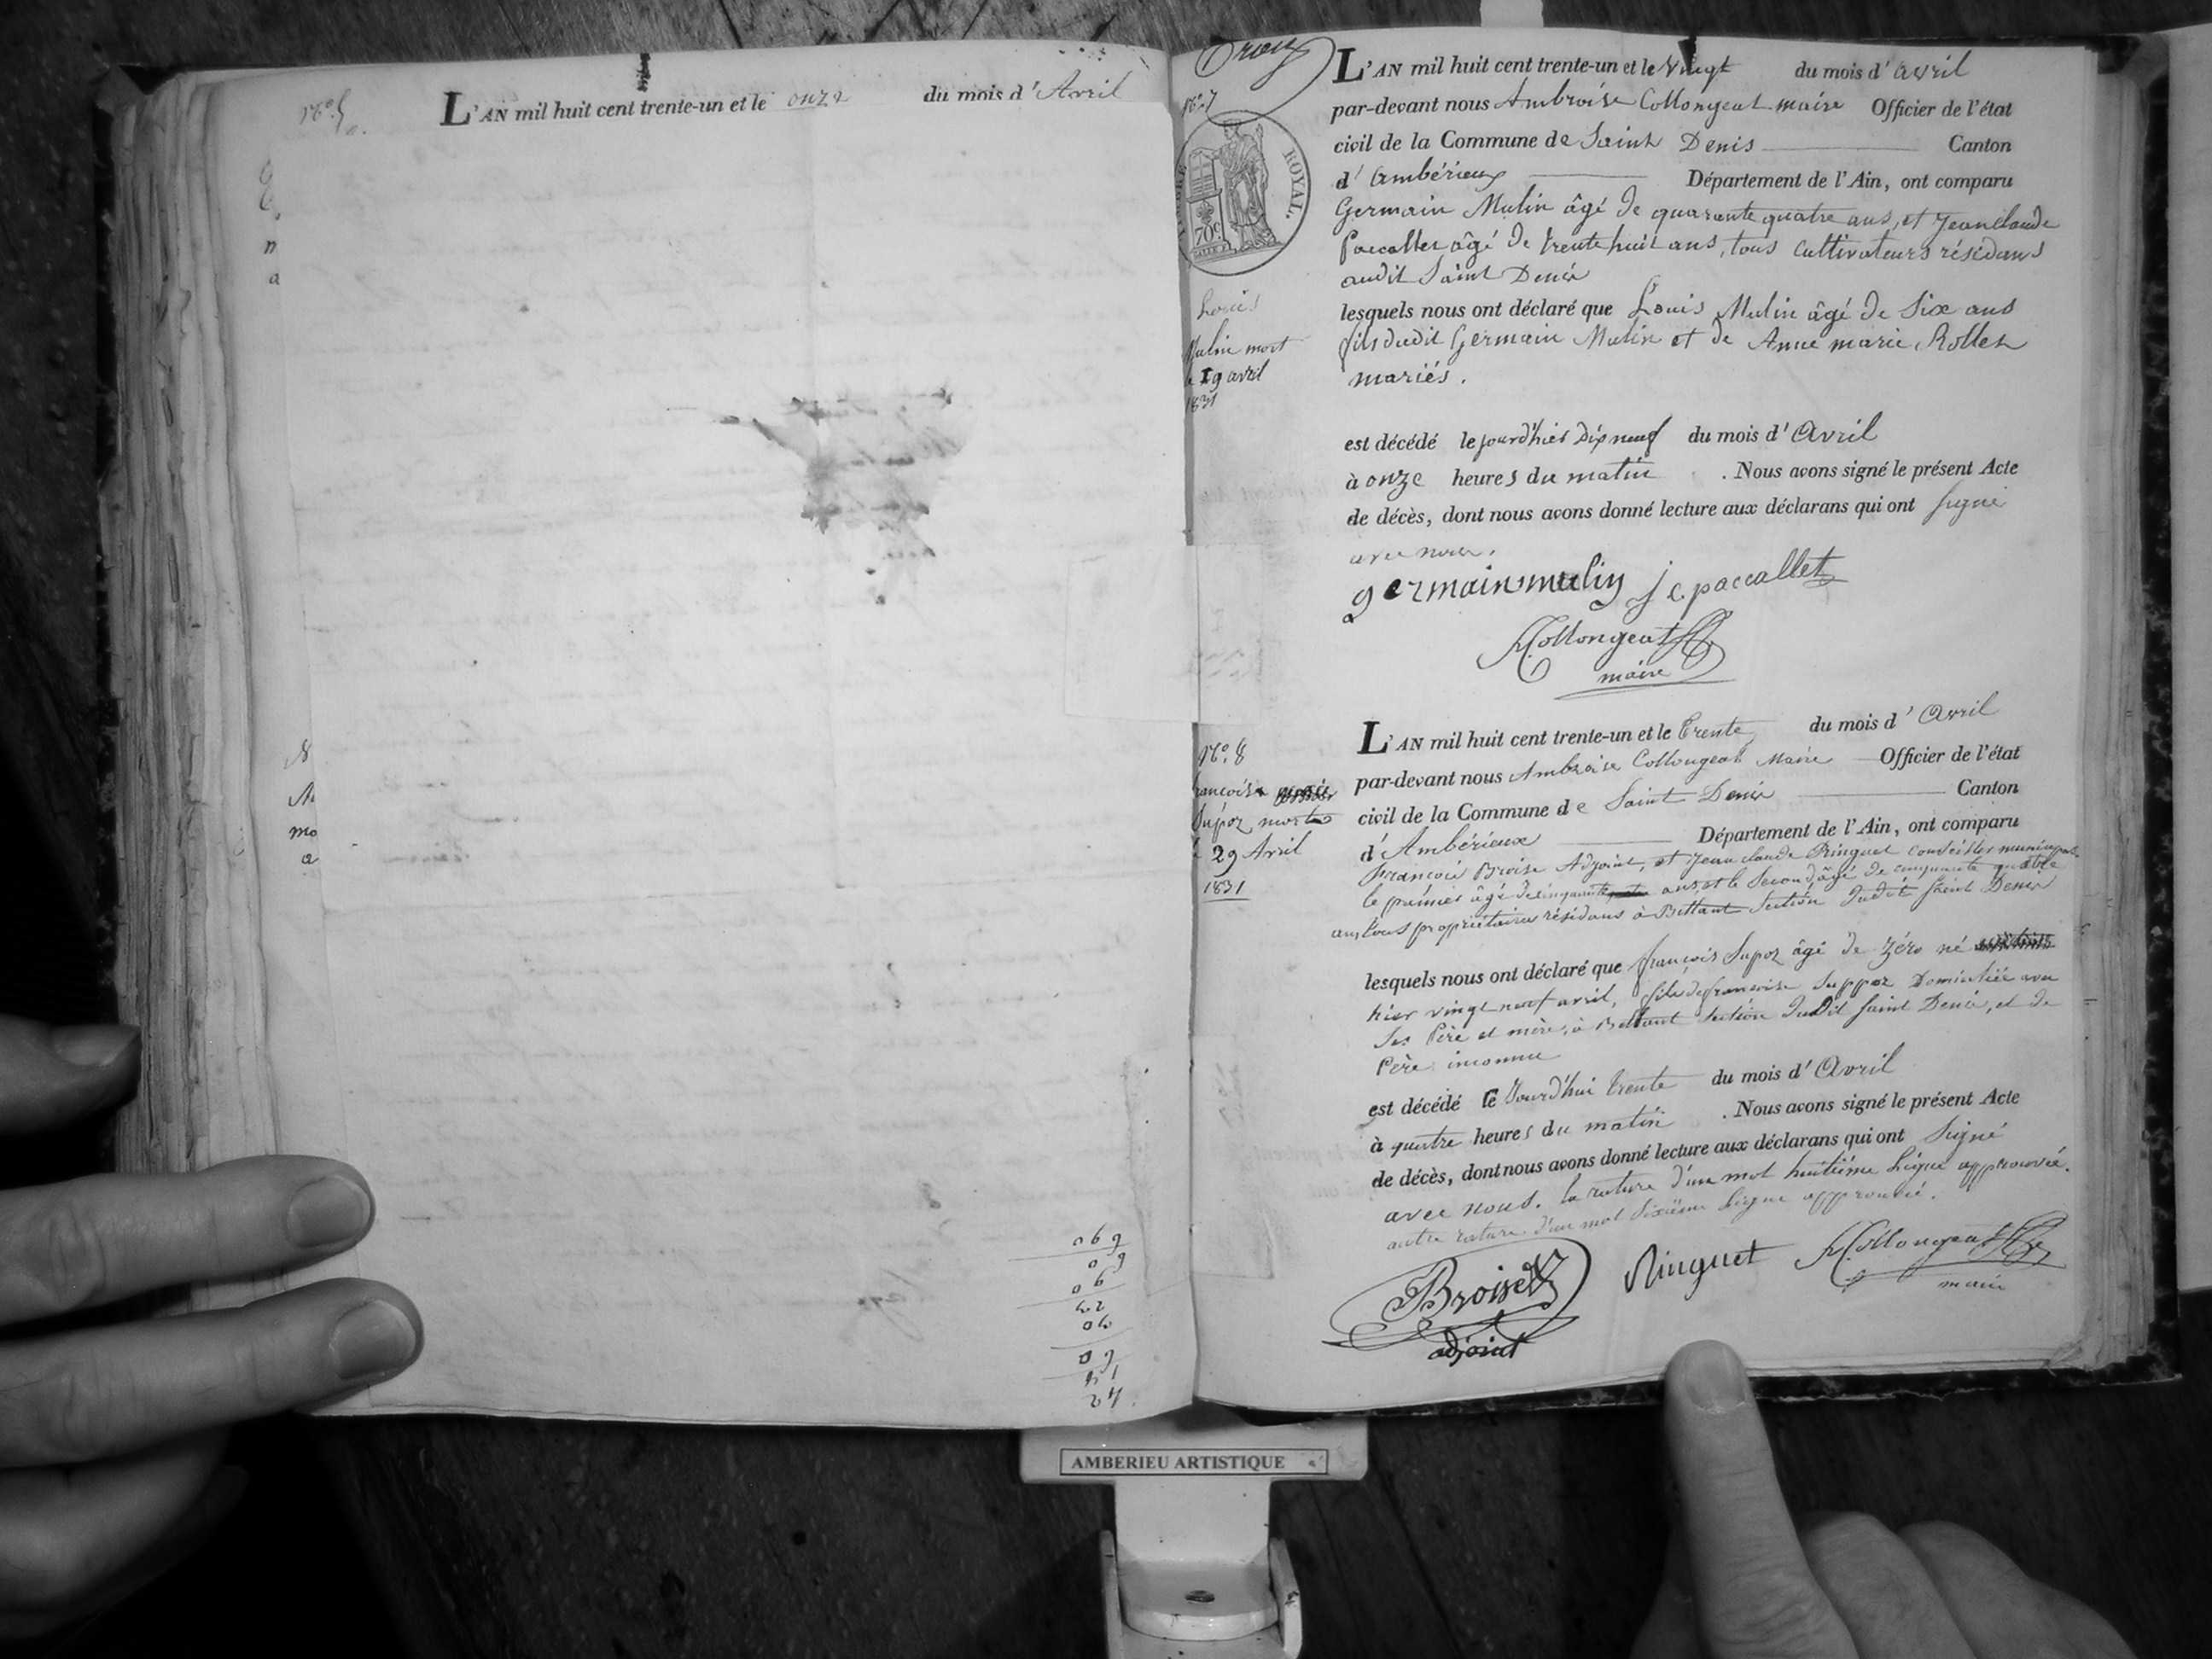 L'AN mil huit cent trente-un et le onze du mois d'Avril
N
M
mo
a
069
09
06
24
N° 7
ROYAL.
70c
Louis
Mulin mort
le 19 avril
1831
L'AN mil huit cent trente-un et le Vingt du mois d'avril
par-devant nous Ambroise Collongeat maire Officier de l'état
civil de la Commune de Saint Denis Canton
d'Ambérieux Département de l'Ain, ont comparu
Germain Mulin âgé de quarante quatre ans, et Jean Claude
Paccallet âgé de trente huit ans, tous cultivateurs résidans
audit Saint Denis
lesquels nous ont déclaré que Louis Mulin âgé de Six ans
fils dudit Germain Mulin et de Anne marie Rollet
mariés.
est décédé le jourd'hier Dix neuf du mois d'Avril
à onze heures du matin . Nous avons signé le présent Acte
de décès, dont nous avons donné lecture aux déclarans qui ont signé
avec nous.
germain mulin j c paccallet
A Collongeat
maire
N° 8
françoise
Supoz morte
le 29 Avril
1831
L'AN mil huit cent trente-un et le trente du mois d'Avril
par-devant nous Ambroise Collongeat Maire Officier de l'état
civil de la Commune de Saint Denis Canton
d'Ambérieux Département de l'Ain, ont comparu
françois Broise Adjoint, et Jean claude Ringuet conseiller municipal
le prémier âgé de cinquante ans, et le Second âgé de cinquante quatre
ans, tous propriétaires résidans à Bettant Section dudit Saint Denis
lesquels nous ont déclaré que françois Supoz âgé de zéro né
hier vingt neuf avril, fils de françoise Suppoz Domiciliée avec
Ses Père et mère, à Bettant Section dudit Saint Denis, et de
Père inconnu
est décédé le Jourd'hui trente du mois d'Avril
à quatre heures du matin . Nous avons signé le présent Acte
de décès, dont nous avons donné lecture aux déclarans qui ont Signé
avec nous. la rature d'un mot huitième ligne approuvée.
autre rature d'un mot Sixième ligne approuvée.
Broise Ringuet A Collongeat
adjoint maire
AMBERIEU ARTISTIQUE